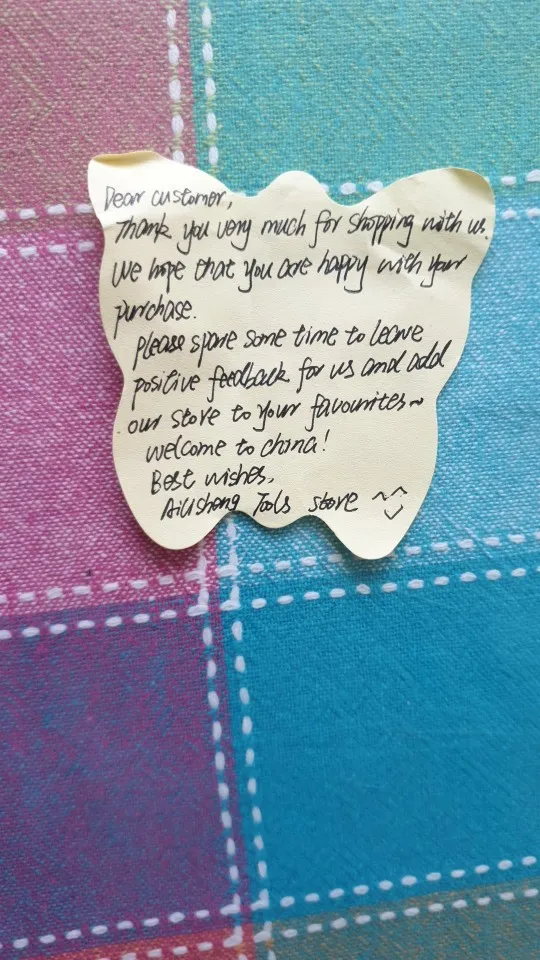 Dear customer,
Thank you very much for shopping with us.
We hope that you are happy with your
purchase.
please spare some time to leave
positive feedback for us and add
our store to your favourites~
welcome to china!
Best wishes,
Ailisheng Tools store